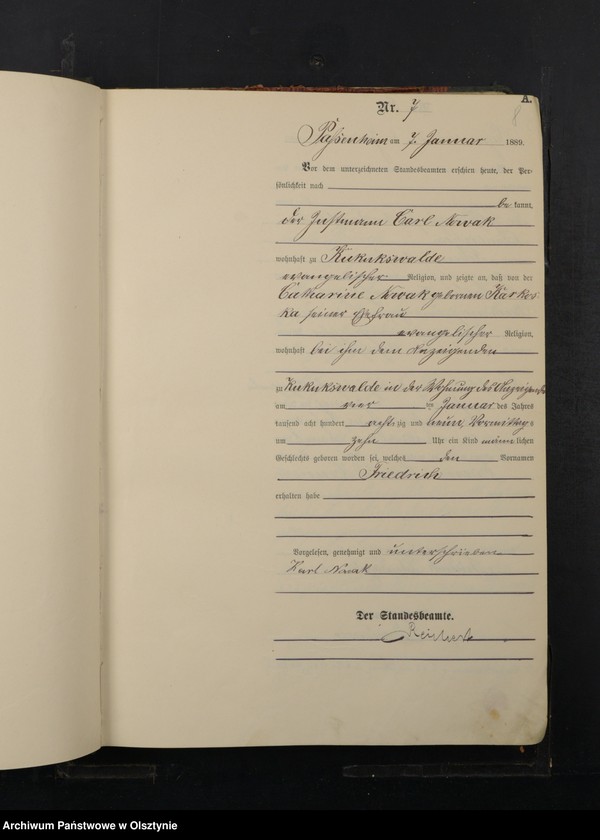 A.
Nr. 7
8
Passenheim am 7. Januar 1889.
Vor dem unterzeichneten Standesbeamten erschien heute, der Per-
sönlichkeit nach
be kannt,
der Instmann Carl Nowak
wohnhaft zu Kukukswalde
evangelischer Religion, und zeigte an, daß von der
Catharine Nowak gebornen Karkos
ka seiner Ehefrau
evangelischer Religion,
wohnhaft bei ihm dem Anzeigenden
zu Kukukswalde in der Wohnung des Anzeigenden
am vier ten Januar des Jahres
tausend acht hundert acht zig und neun Vormittag s
um zehn Uhr ein Kind männ lichen
Geschlechts geboren worden sei, welches den Vornamen
Friedrich
erhalten habe
Vorgelesen, genehmigt und unterschrieben
Karl Nowak
Der Standesbeamte.
Archiwum Państwowe w Olsztynie